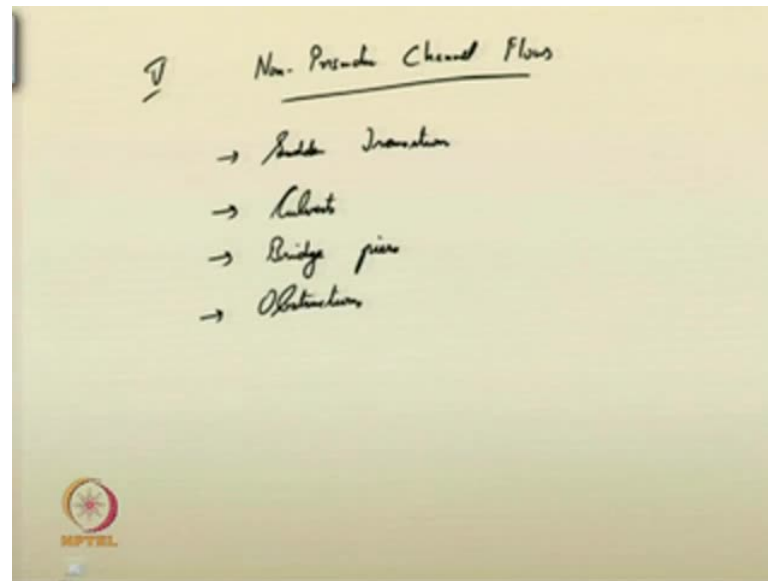 V Non-Prismatic Channel Flows
→ Sudden Transition
→ Culverts
→ Bridge piers
→ Obstructions
NPTEL